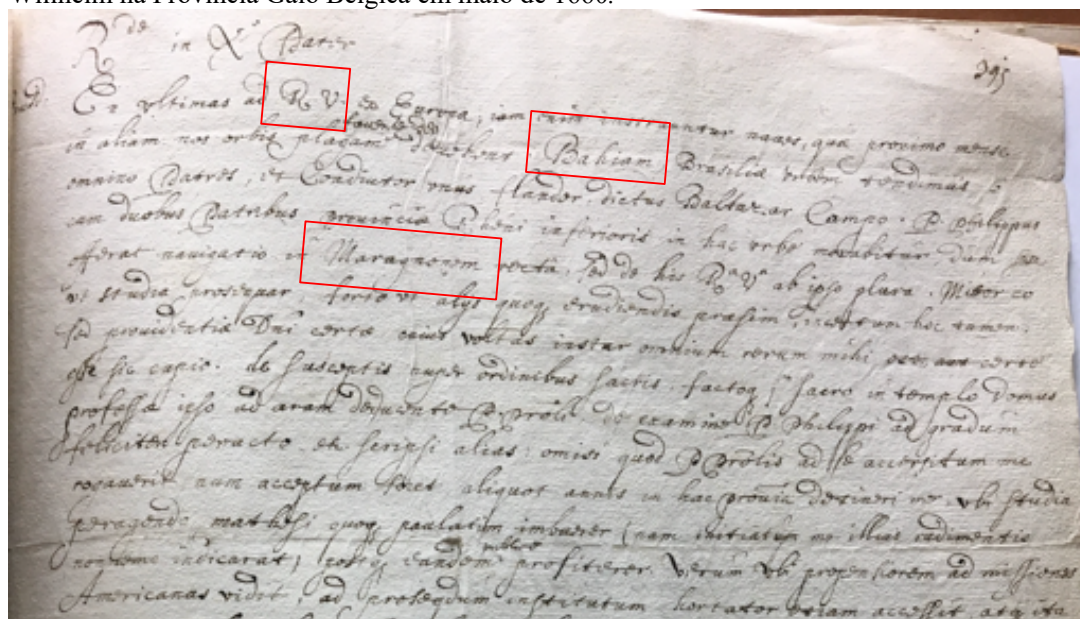 Wilhelmi na Província Galo Belgica em maio de 1660.
R de in X Pater
395
Ex ultimas ad R. V. ex Europa, iam instruuntur naues, quæ proximo mense
in aliam nos orbis plagam fauente Deo deuehent Bahiam Brasiliæ urbem tendimus
omnino Patres, et Coadiutor unus flander, dictus Baltazar Campo. P. Philippus
cum duobus Patribus prouinciæ Rheni inferioris in hac urbe morabitur dum
ferat nauigatio in Maragnonem recta, sed de his Rª Vª ab ipso plura. Mittor eo
ut studia prosequar, forte ut alys quoq erudiendis præsim, incertum hoc tamen.
sed prouidentia Dni certe eius uoltas instar omnium rerum mihi certe
sic capio. de susceptis nuper ordinibus sacris, factoq sacro in templo Domus
professæ ipso ad aram deducente P. Prôli. de examine P. Philippi ad gradum
feliciter peracto et scripsi alias: omisi quod P Prôlis ad se accersitum me
rogauerit num acceptum foret aliquot annis in hac prouia detineri me ubi studia
peragendo mathesi quoq paulatim imbuerer (nam initiatum me illius rudimentis
indicarat) eandem publice profiterer. Verum ubi propensiorem ad missiones
Americanas vidit, ad prosequdum institutum hortator etiam accessit, atq ita